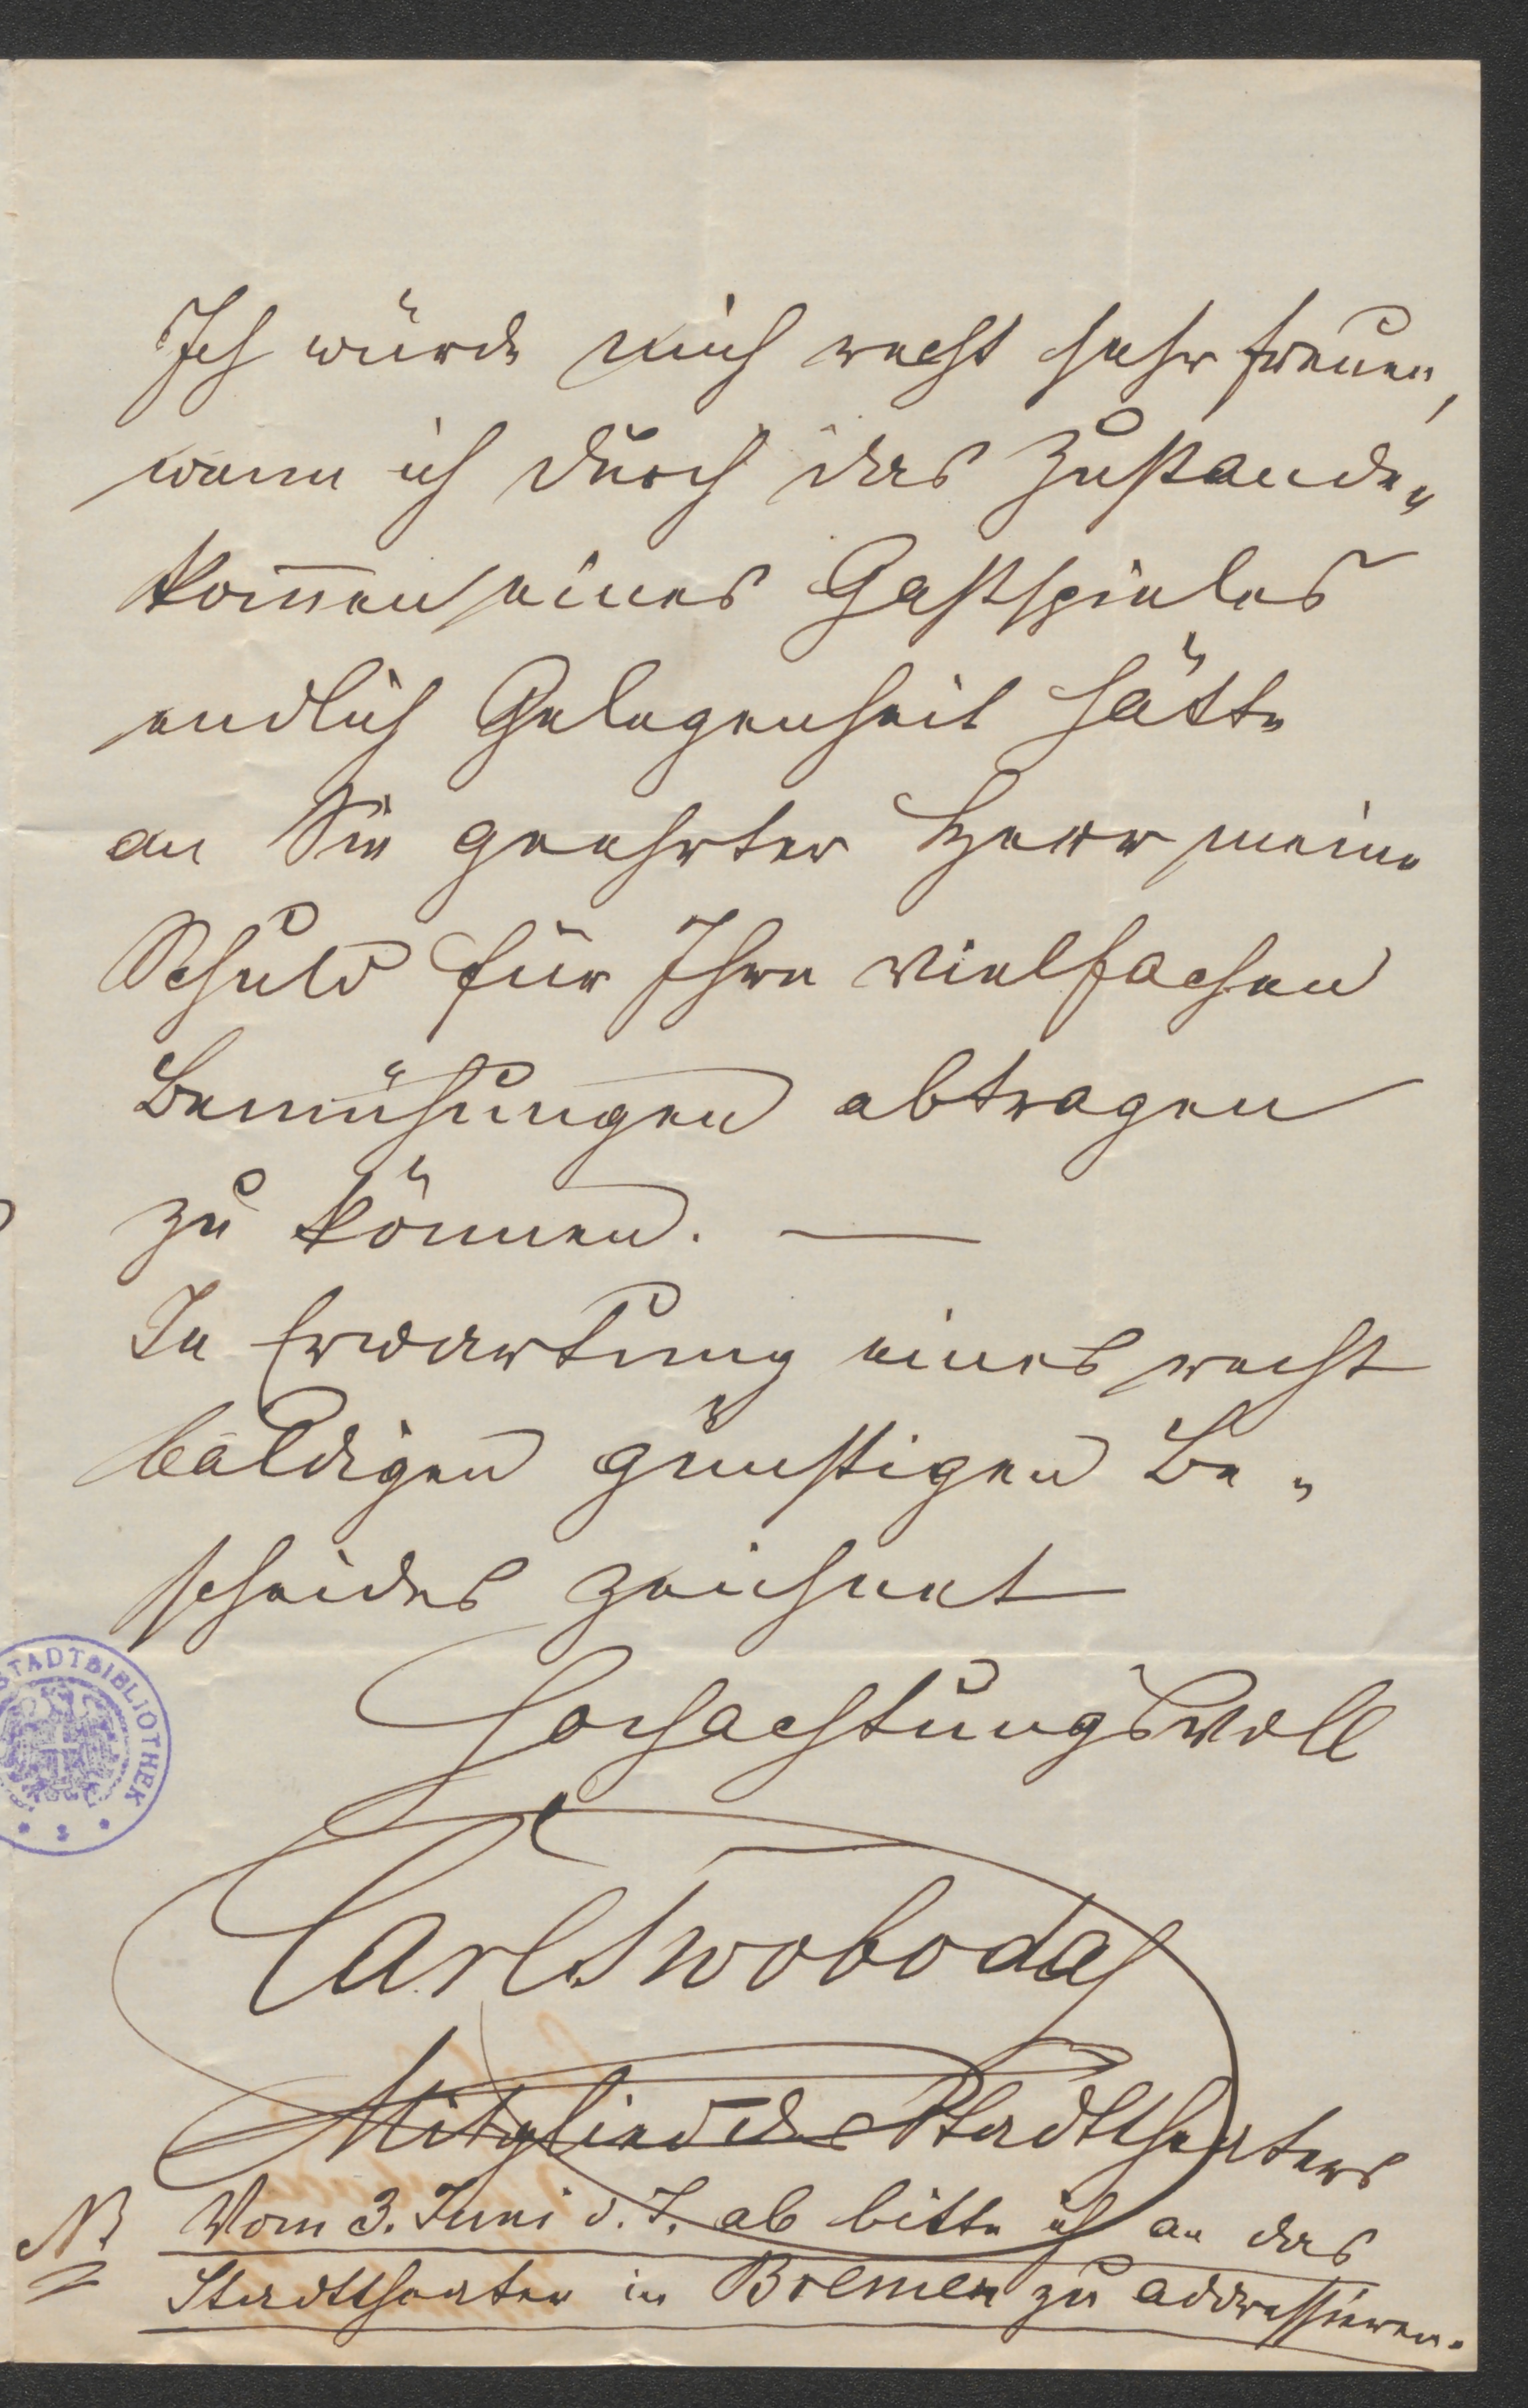 Ich würde mich recht sehr freuen,
wenn ich durch das Zustande„
kom̅en eines Gastspieles
endlich Gelegenheit hätte
an Sie geehrter Herr meine
Schuld für Ihre vielfachen
Bemühungen abtragen
zu können. —
In Erwartung eines recht
baldigen günstigen Be„
scheides zeichnet
Hochachtungsvoll
Carl Swoboda
Mitglied des Stadttheaters
NB Vom 3. Juni d. J. ab bitte ich an das
Stadttheater in Bremen zu addressieren.
STADTBIBLIOTHEK